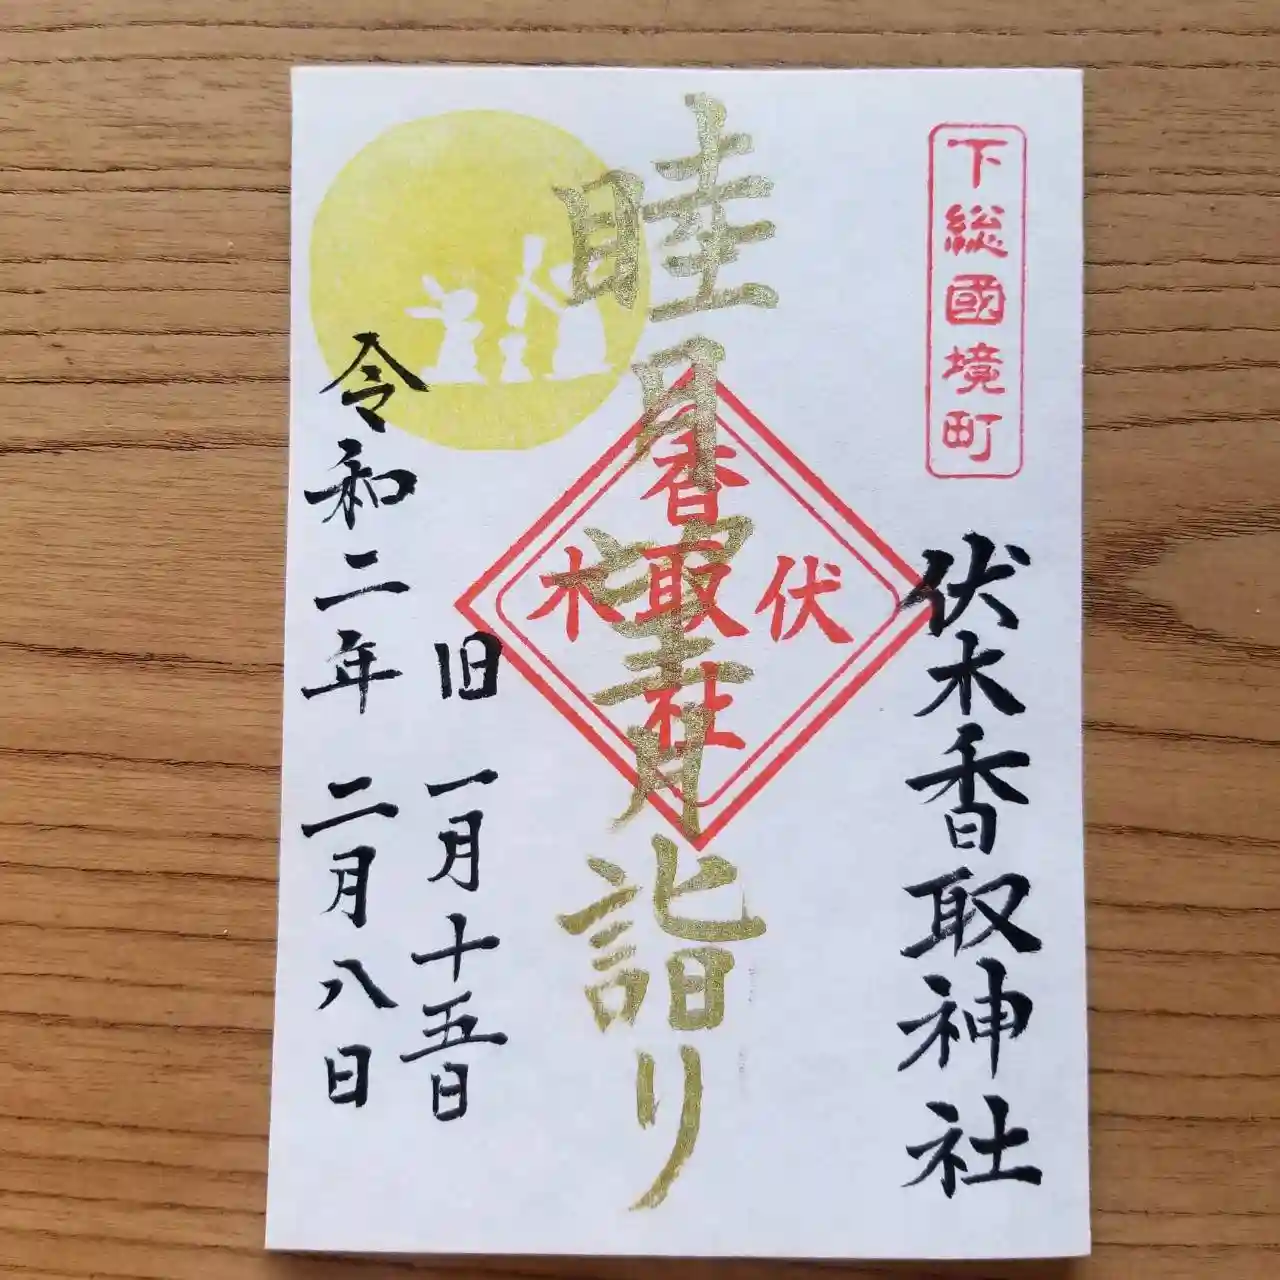 下総國境町
伏木香取神社
伏木
香取社
睦月望月詣り
旧一月十五日
令和二年二月八日